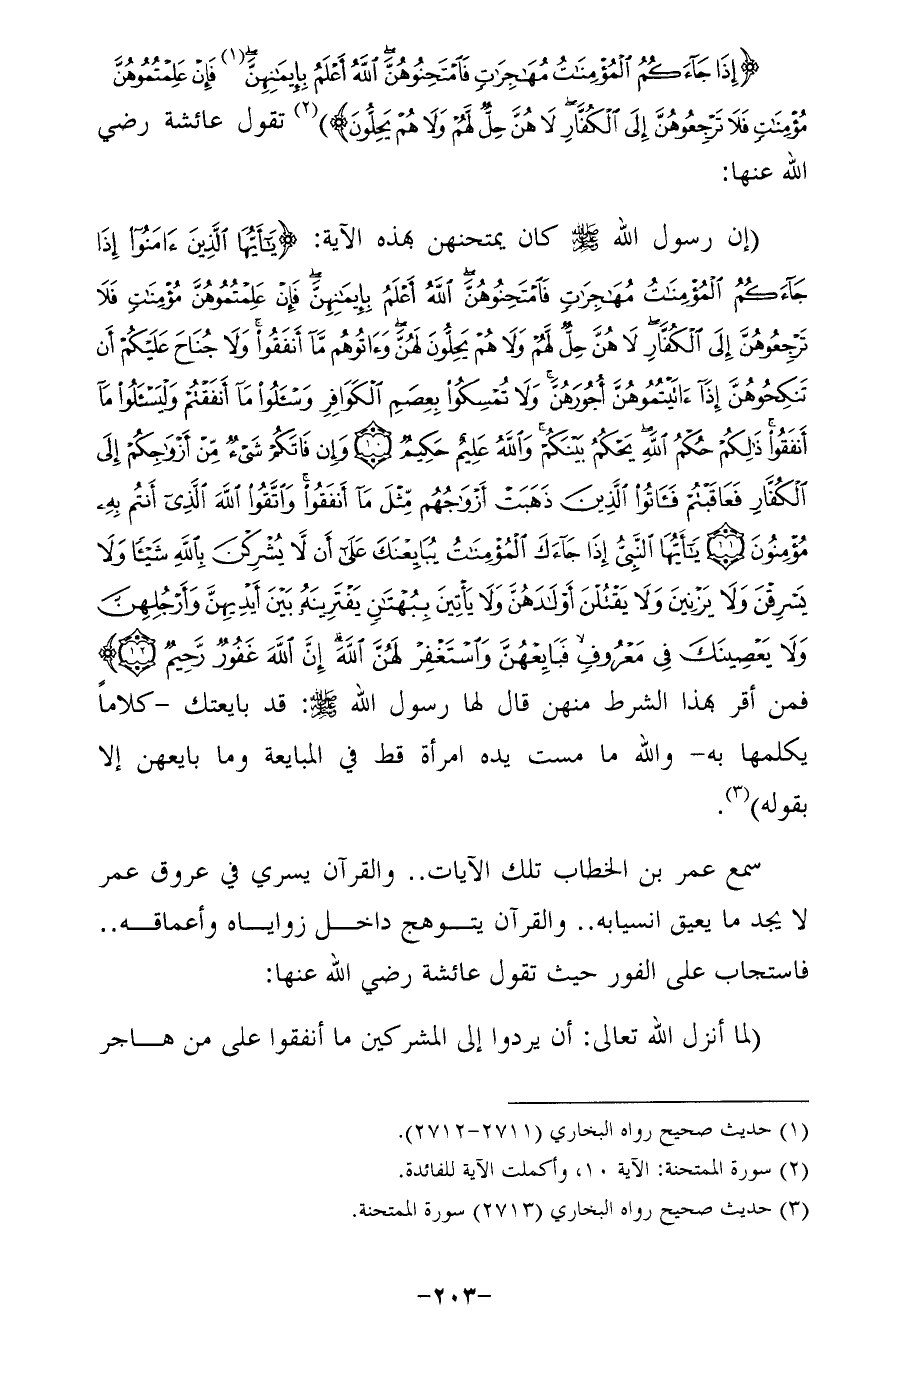 ﴿إِذَا جَآءَكُمُ ٱلْمُؤْمِنَٰتُ مُهَٰجِرَٰتٍ فَٱمْتَحِنُوهُنَّ ۖ ٱللَّهُ أَعْلَمُ بِإِيمَٰنِهِنَّ ۖ(١) فَإِنْ عَلِمْتُمُوهُنَّ
مُؤْمِنَٰتٍ فَلَا تَرْجِعُوهُنَّ إِلَى ٱلْكُفَّارِ ۖ لَا هُنَّ حِلٌّ لَّهُمْ وَلَا هُمْ يَحِلُّونَ﴾)(٢) تقول عائشة رضي
الله عنها:
(إن رسول الله ﷺ كان يمتحنهن بهذه الآية: ﴿يَٰٓأَيُّهَا ٱلَّذِينَ ءَامَنُوٓا۟ إِذَا
جَآءَكُمُ ٱلْمُؤْمِنَٰتُ مُهَٰجِرَٰتٍ فَٱمْتَحِنُوهُنَّ ۖ ٱللَّهُ أَعْلَمُ بِإِيمَٰنِهِنَّ ۖ فَإِنْ عَلِمْتُمُوهُنَّ مُؤْمِنَٰتٍ فَلَا
تَرْجِعُوهُنَّ إِلَى ٱلْكُفَّارِ ۖ لَا هُنَّ حِلٌّ لَّهُمْ وَلَا هُمْ يَحِلُّونَ لَهُنَّ ۖ وَءَاتُوهُم مَّآ أَنفَقُوا۟ ۚ وَلَا جُنَاحَ عَلَيْكُمْ أَن
تَنكِحُوهُنَّ إِذَآ ءَاتَيْتُمُوهُنَّ أُجُورَهُنَّ ۚ وَلَا تُمْسِكُوا۟ بِعِصَمِ ٱلْكَوَافِرِ وَسْـَٔلُوا۟ مَآ أَنفَقْتُمْ وَلْيَسْـَٔلُوا۟ مَآ
أَنفَقُوا۟ ۚ ذَٰلِكُمْ حُكْمُ ٱللَّهِ ۖ يَحْكُمُ بَيْنَكُمْ ۚ وَٱللَّهُ عَلِيمٌ حَكِيمٌ ١٠ وَإِن فَاتَكُمْ شَىْءٌ مِّنْ أَزْوَٰجِكُمْ إِلَى
ٱلْكُفَّارِ فَعَاقَبْتُمْ فَـَٔاتُوا۟ ٱلَّذِينَ ذَهَبَتْ أَزْوَٰجُهُم مِّثْلَ مَآ أَنفَقُوا۟ ۚ وَٱتَّقُوا۟ ٱللَّهَ ٱلَّذِىٓ أَنتُم بِهِۦ
مُؤْمِنُونَ ١١ يَٰٓأَيُّهَا ٱلنَّبِىُّ إِذَا جَآءَكَ ٱلْمُؤْمِنَٰتُ يُبَايِعْنَكَ عَلَىٰٓ أَن لَّا يُشْرِكْنَ بِٱللَّهِ شَيْـًٔا وَلَا
يَسْرِقْنَ وَلَا يَزْنِينَ وَلَا يَقْتُلْنَ أَوْلَٰدَهُنَّ وَلَا يَأْتِينَ بِبُهْتَٰنٍ يَفْتَرِينَهُۥ بَيْنَ أَيْدِيهِنَّ وَأَرْجُلِهِنَّ
وَلَا يَعْصِينَكَ فِى مَعْرُوفٍ ۙ فَبَايِعْهُنَّ وَٱسْتَغْفِرْ لَهُنَّ ٱللَّهَ ۖ إِنَّ ٱللَّهَ غَفُورٌ رَّحِيمٌ ١٢﴾
فمن أقر بهذا الشرط منهن قال لها رسول الله ﷺ: قد بايعتك -كلاماً
يكلمها به- والله ما مست يده امرأة قط في المبايعة وما بايعهن إلا
بقوله)(٣).
سمع عمر بن الخطاب تلك الآيات.. والقرآن يسري في عروق عمر
لا يجد ما يعيق انسيابه.. والقرآن يتوهج داخل زواياه وأعماقه..
فاستجاب على الفور حيث تقول عائشة رضي الله عنها:
(لما أنزل الله تعالى: أن يردوا إلى المشركين ما أنفقوا على من هاجر
(١) حديث صحيح رواه البخاري (٢٧١١-٢٧١٢).
(٢) سورة الممتحنة: الآية ١٠، وأكملت الآية للفائدة.
(٣) حديث صحيح رواه البخاري (٢٧١٣) سورة الممتحنة.
-٢٠٣-